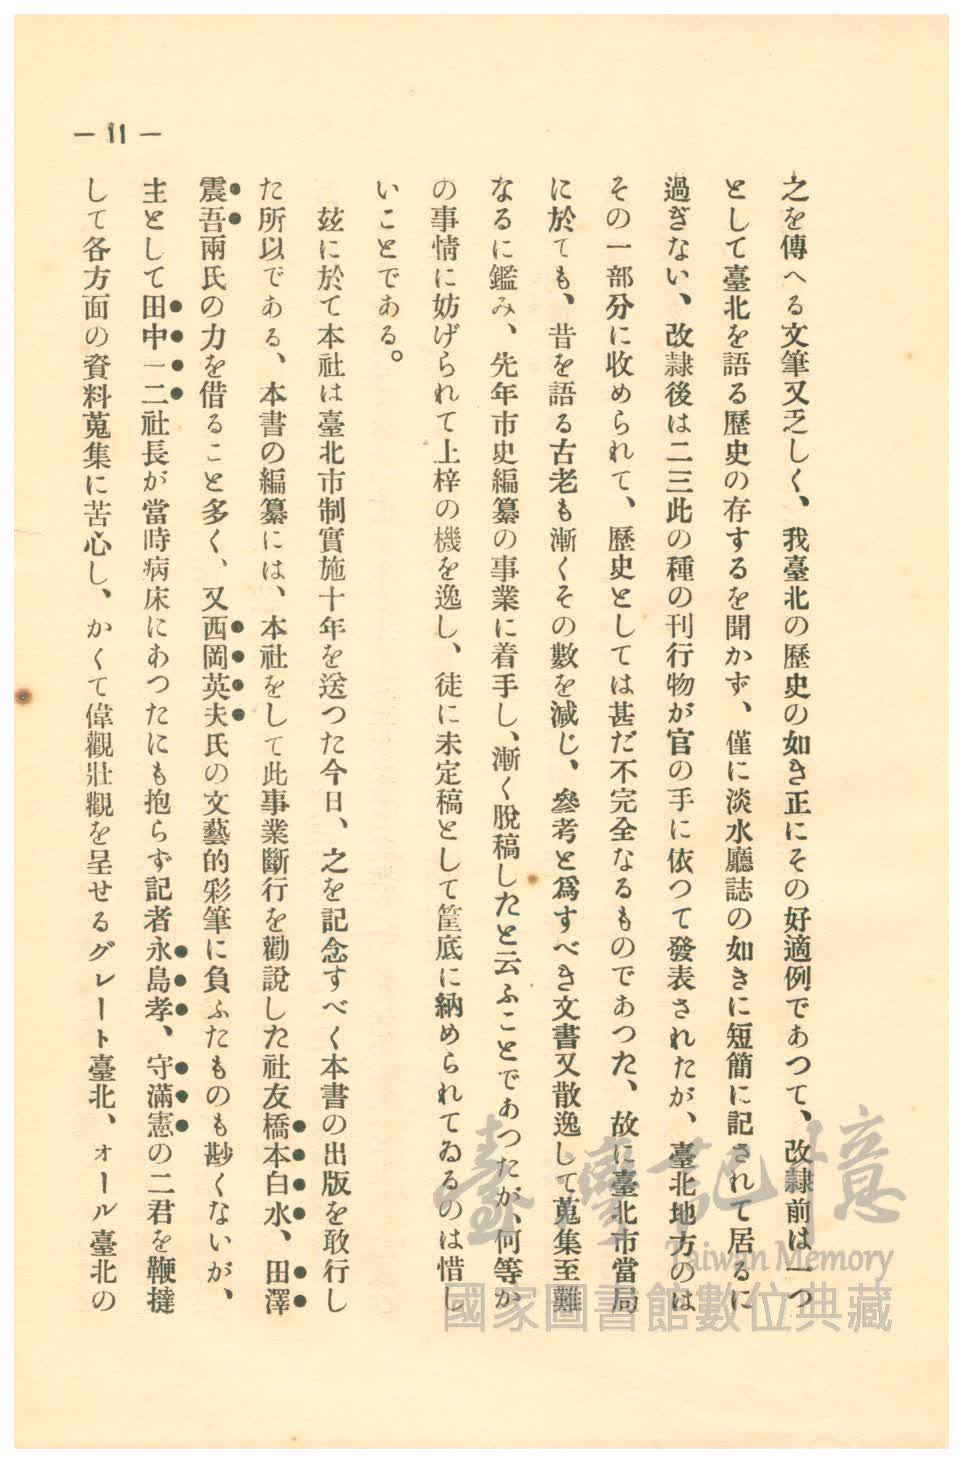 — 11 —
之を傳へる文筆又乏しく、我臺北の歷史の如き正にその好適例であつて、改隷前は一つ
として臺北を語る歷史の存するを聞かず、僅に淡水廳誌の如きに短簡に記されて居るに
過ぎない、改隷後は二三此の種の刊行物が官の手に依つて發表されたが、臺北地方のは
その一部分に收められて、歷史としては甚だ不完全なるものであつた、故に臺北市當局
に於ても、昔を語る古老も漸くその數を減じ、參考と爲すべき文書又散逸して蒐集至難
なるに鑑み、先年市史編纂の事業に着手し、漸く脫稿したと云ふことであつたが、何等か
の事情に妨げられて上梓の機を逸し、徒に未定稿として筐底に納められてゐるのは惜し
いことである。
玆に於て本社は臺北市制實施十年を送つた今日、之を記念すべく本書の出版を敢行し
た所以である、本書の編纂には、本社をして此事業斷行を勸說した社友橋本白水、田澤
震吾兩氏の力を借ること多く、又西岡英夫氏の文藝的彩筆に負ふたものも尠くないが、
主として田中一二社長が當時病床にあつたにも抱らず記者永島孝、守滿憲の二君を鞭撻
して各方面の資料蒐集に苦心し、かくて偉觀壯觀を呈せるグレート臺北、オール臺北の
臺灣記憶
Taiwan Memory
國家圖書館數位典藏